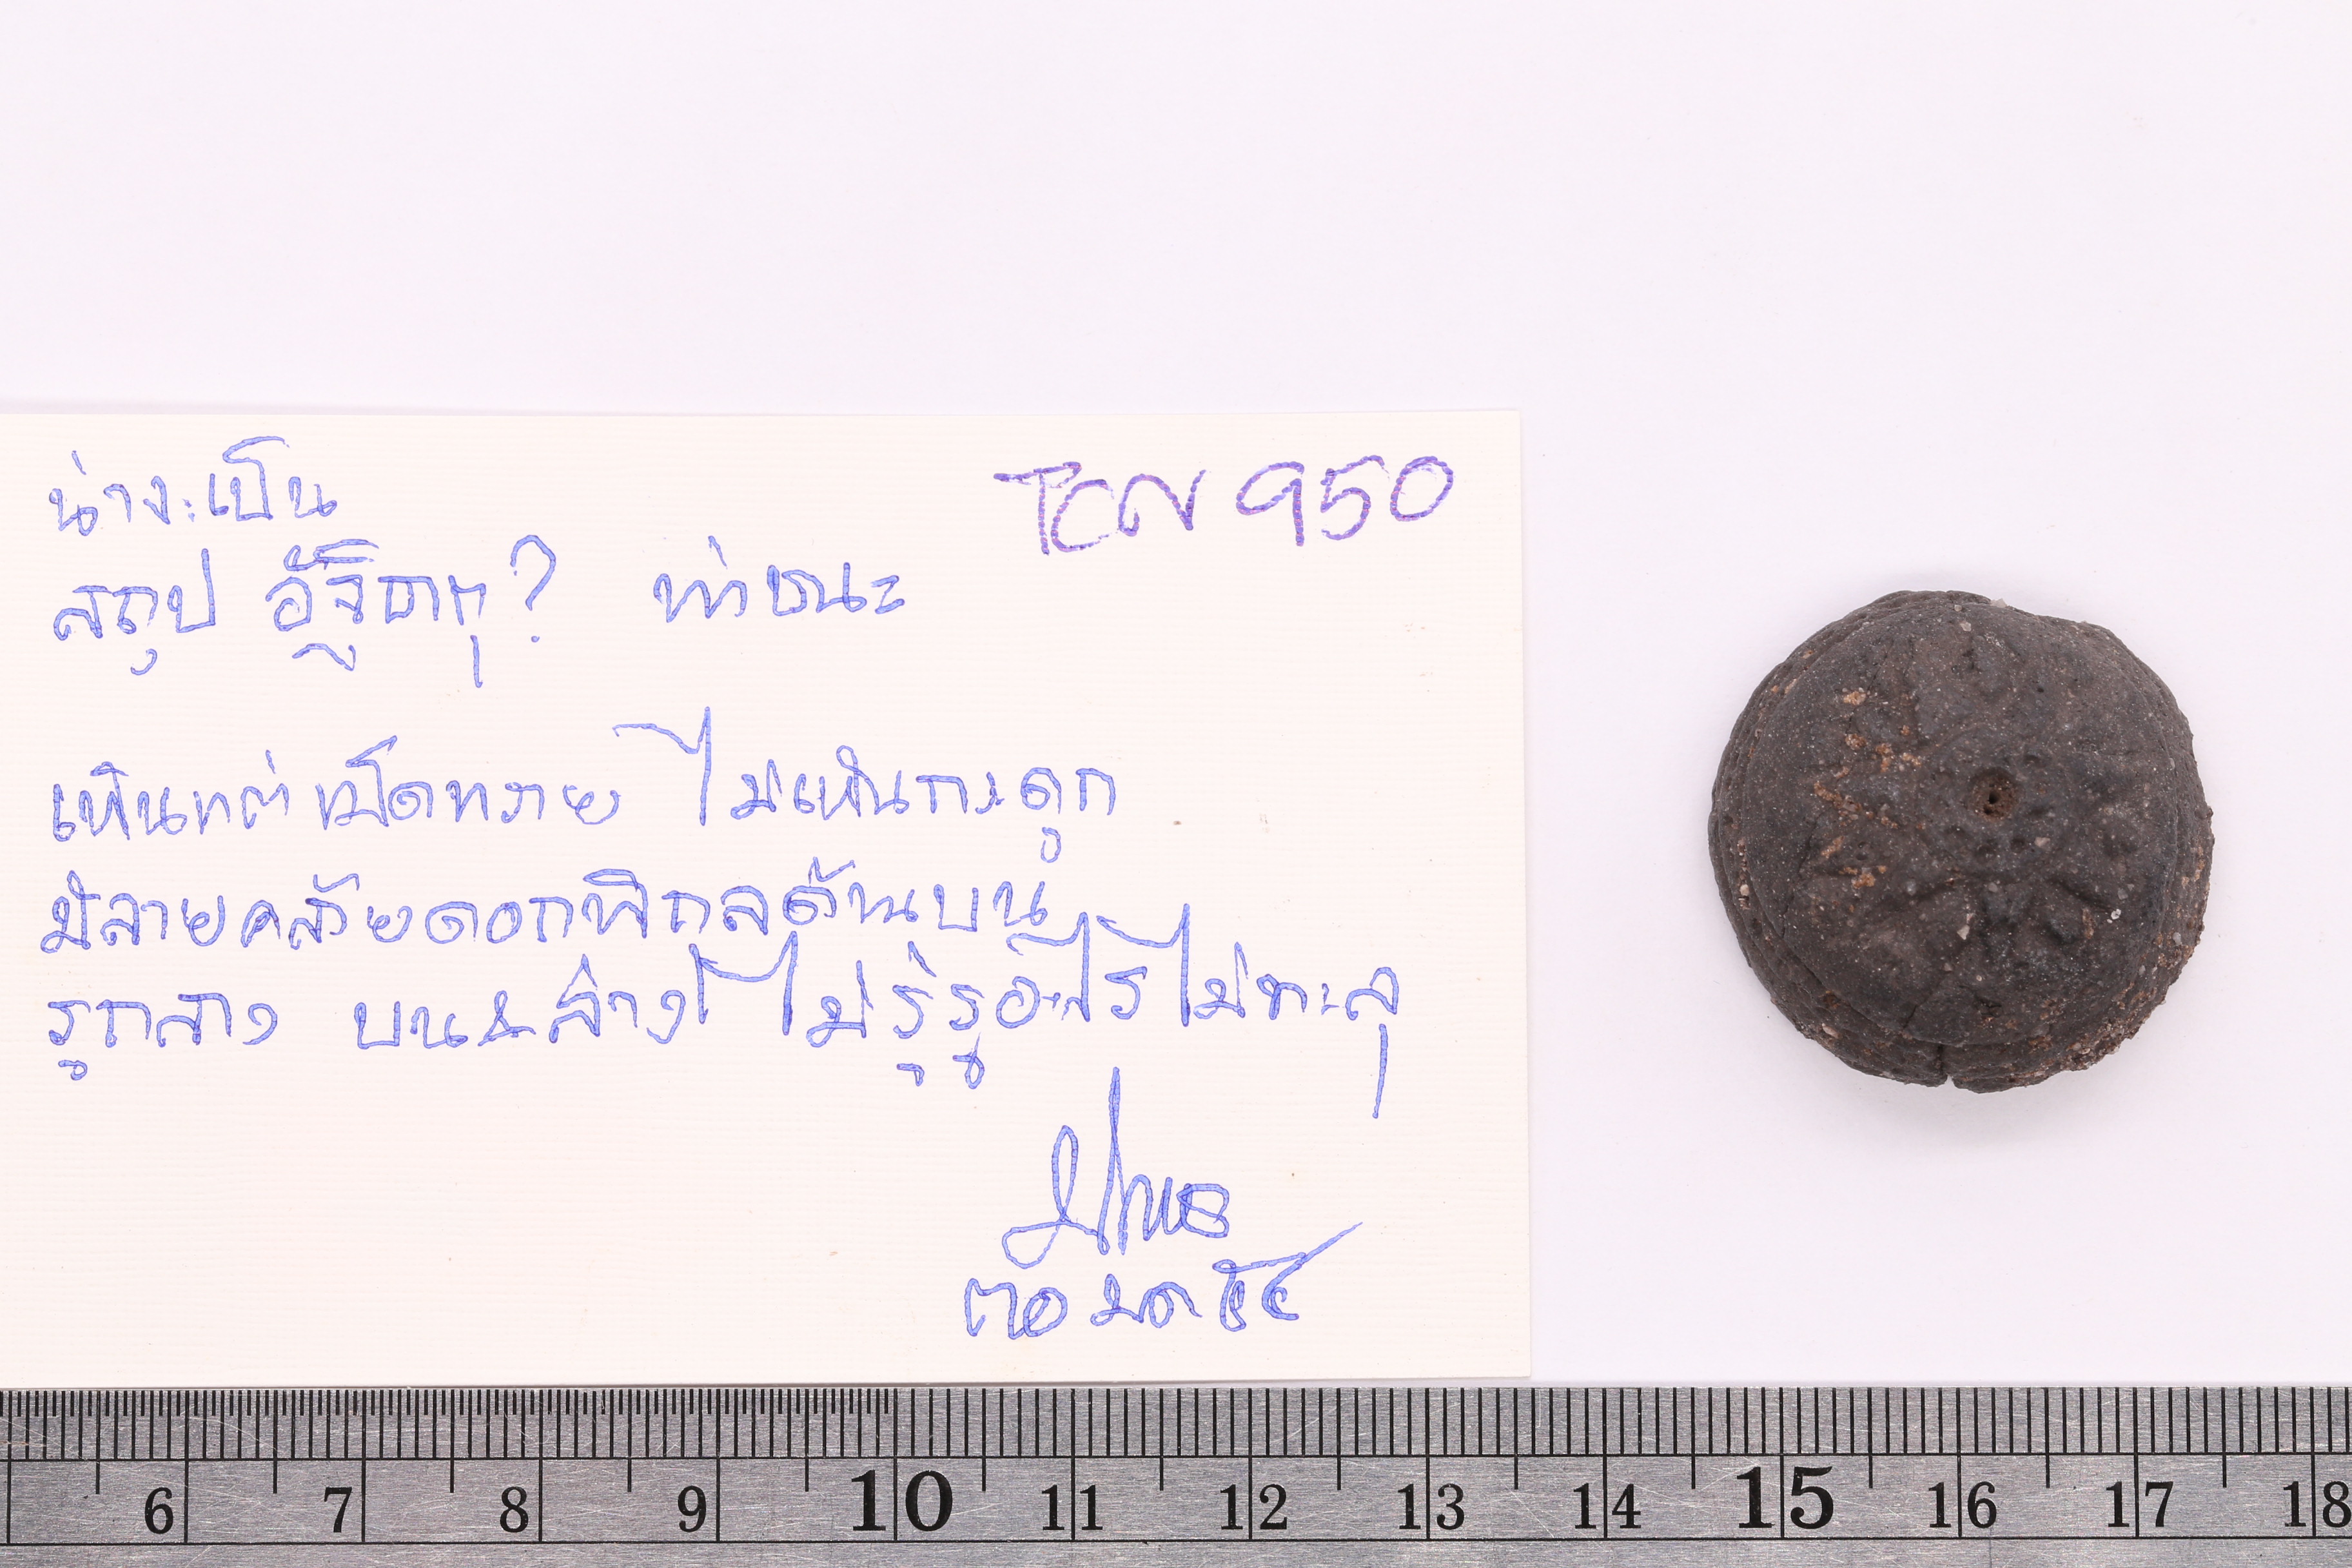 TCN 950
น่าจะเป็น
สถูป อัฐิธาตุ? ท่าชนะ
เห็นแต่เม็ดทราย ไม่เห็นกระดูก
มีลายคล้ายดอกพิกุลด้านบน
รูกลาง บน&ล่าง ไม่รู้รูอะไร ไม่ทะลุ
๓๐ มค ๕๔
6 7 8 9 10 11 12 13 14 15 16 17 18